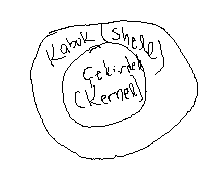 Kabuk (Shell)
Çekirdek
(Kernel)